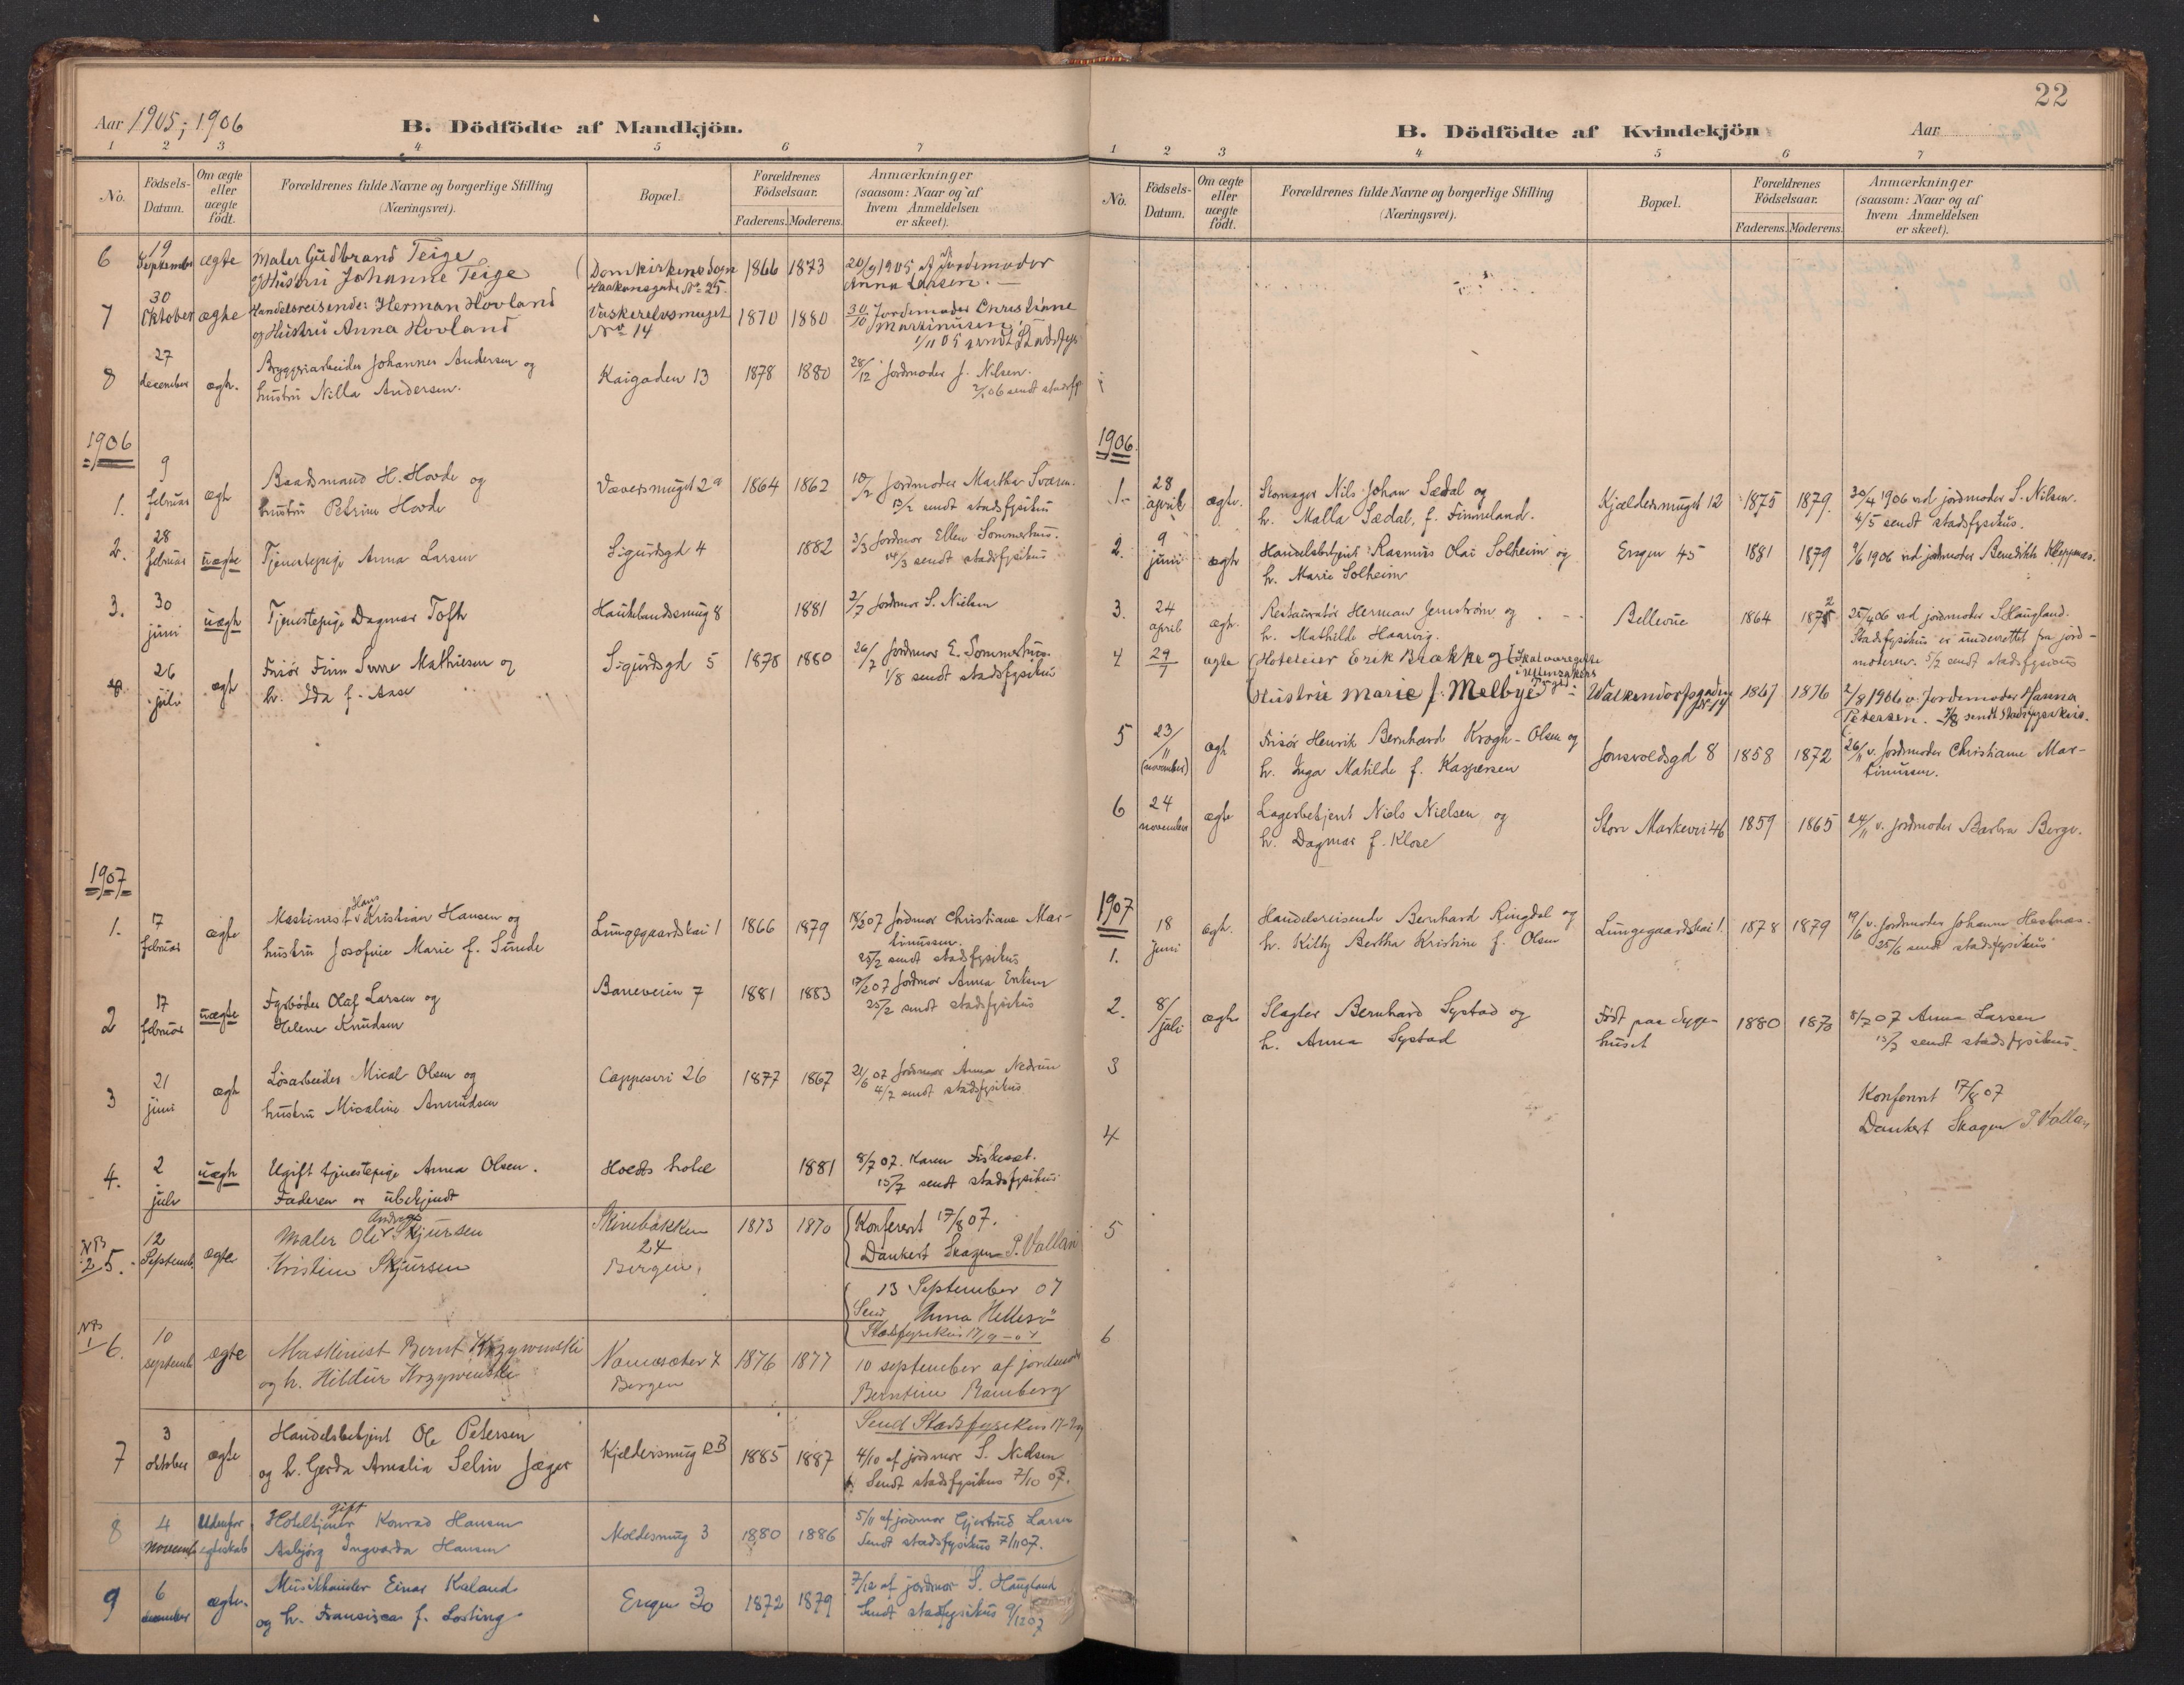 Aar 1905; 1906
B. Dödfödte af Mandkjön.
1 2 3 4 5 6 7
No.
Födsels-Datum.
Om ægte eller uægte födt.
Forældrenes fulde Navne og borgerlige Stilling (Næringsvei).
Bopæl.
Forældrenes Födselsaar.
Faderens. Moderens.
Anmærkninger (saasom: Naar og af hvem Anmeldelsen er skeet).
6 19 September ægte Maler Gudbrand Teige Domkirkens Sogn 1866 1873 20/9 1905 af Jordemoder
og Hustru Johanne Teige Haakonsgade No 25. Anna Larsen.
7 30 Oktober ægte Handelsreisende: Herman Hovland Vaskerelvsmuget 1870 1880 30/10 Jordemoder Christiane
og Hustru Anna Hovland No 14 Martinusen.
1/11 05 sendt Stadsfys
8 27 december ægte. Bryggeriarbeider Johannes Andersen og Kaigaden 13 1878 1880 28/12 Jordmoder J. Nilsen.
hustru Nilla Andersen. 2/1 06 sendt stadsfys
1906
1. 9 februar ægte Baadsmand H. Hovde og Væversmuget 2a 1864 1862 10/2 Jordmoder Martha
hustru Petrine Hovde 13/2 sendt stadsfysikus
2. 28 februar uægte Tjenestepige Anna Larsen Sigurdsgd 4 1882 3/3 Jordmor Ellen Sommerhus.
14/3 sendt stadsfysikus
3. 30 juni uægte Tjenestepige Dagmar Toft Haukelandssmug 8 1881 2/7 Jordmor S. Nielsen
4. 26 juli ægte Frisör Finn Mathiesen og Sigurdsgd 5 1878 1880 26/7 Jordmor E. Sommerhus.
h. Ida f. Aase 1/8 sendt stadsfysikus
1907
1. 17 februar ægte Maskinist Hans Kristian Hansen og Lungegaardskai 1 1866 1879 18/2 07 Jordmor Christiane Mar-
hustru Josefine Marie f. Sunde tinussen.
25/2 sendt stadsfysikus
2 17 februar uægte Fyrböder Olaf Larsen og Baneveien 7 1881 1883 17/2 07 Jordmor Anna Eriksen
Helene Knudsen 25/2 sendt stadsfysikus
3 21 juni ægte Lösarbeider Mical Olsen og Cappesvei 26 1877 1867 21/6 07 Jordmor Anna
hustru Micaline Amundsen 4/7 sendt stadsfysikus
4. 2 juli uægte Ugift tjenestepige Anna Olsen. Holdts hotel 1881 8/7 07. Karen Fiskeset.
Faderen er ubekjendt 15/7 sendt stadsfysikus
NB 2 5. 12 Septemb. ægte Maler Ole Andreas Skjursen Skivebakken 24 Bergen. 1873 1870 Konferert 17/8 07.
Kristine Skjursen Dankert Skagen P. Vallan
13 September 07
Send Anna Hellesö
Stadsfysikus 17/9-07
NB 1 6. 10 septemb ægte Maskinist Bernt Krzywinski 1876 1877 10 september af jordemoder
og h. Hildur Krzywinski Bergen Berntine Ramberg
Send Stadsfysikus 17-9-07
7 3 oktober ægte Handelsbetjent Ole Petersen Kjeldersmug 12B 1885 1887 4/10 af jordmor S. Nielsen
og h. Gerda Amalia Selin Jæger Sendt stadsfysikus 7/10 07.
8 4 November Udenfor egteskab Hoteltjener gift Konrad Hansen Moldesmug 3 1880 1886 5/11 af jordmor Gjertrud Larsen
Asbjörg Ingvarda Hansen Sendt stadsfysikus 7/11 07.
9 6 december ægte. Musikhandler Einar Kaland Engen 30 1872 1879 7/12 af jordmor S. Haugland
og h. Fransisca f. Losting Sendt stadsfysikus 9/12 07
22
B. Dödfödte af Kvindekjön
Aar
1 2 3 4 5 6 7
No.
Födsels-Datum.
Om ægte eller uægte födt.
Forældrenes fulde Navne og borgerlige Stilling (Næringsvei).
Bopæl.
Forældrenes Födselsaar.
Faderens. Moderens.
Anmærkninger (saasom: Naar og af hvem Anmeldelsen er skeet).
1906
1. 28 april ægte. Skomager Nils Johan Sædal og Kjeldersmuget 12 1875 1879. 30/4 1906 ved jordmoder S. Nilsen.
h. Malla Sædal, f. Finneland. 4/5 sendt stadsfysikus.
2. 9 juni ægte Handelsbetjent Rasmus Olai Solheim og Engen 45 1881 1879 9/6 1906 ved jordmoder Benedikte Kleppenæs.
h. Marie Solheim
3. 24 april ægte. Restauratör Herman Jernström og Bellevue 1864 1872 25/4 06 ved jordmoder S Haugland.
h. Mathilde Haarvig. Stadsfysikus er underrettet fra jord-
moderen. 5/7 sendt stadsfysikus
4 29/7 ægte Hoteleier Erik Brække og (Skal være gifte
Hustru Marie f. Melbye Walkendorfsgaden No 14 1867 1876 2/8 1906 v. Jordemoder Hanna
Petersen. 3/8 sendt Stadsfysikus.
5 23/11 (november) ægte Frisör Henrik Bernhard Krogh-Olsen og Jonsvoldsgd 8 1858 1872 26/11 v. Jordmoder Christiane Mar-
h. Inga Matilde f. Kaspersen tinussen.
6 24 november ægte Lagerbetjent Niels Nielsen og Store Markevei 46 1859 1865 24/11 v. jordmoder Barbra Berge.
h. Dagmar f. Klose
1907
1. 18 juni ægte. Handelsreisende Bernhard Ringdal og Lungegaardskai 1. 1878 1879 19/6 v. Jordmoder Johanne Hestnæs.
h. Kitty Bertha Kristine f. Olsen 25/6 sendt stadsfysikus
2. 8/juli ægte Slagter Bernhard Systad og Födt paa Syge- 1880 1873 8/7 07 Anna Larsen
h. Anna Systad huset 15/7 sendt stadsfysikus.
3
Konferert 17/8 07
Dankert Skagen P. Vallan
4
5
6